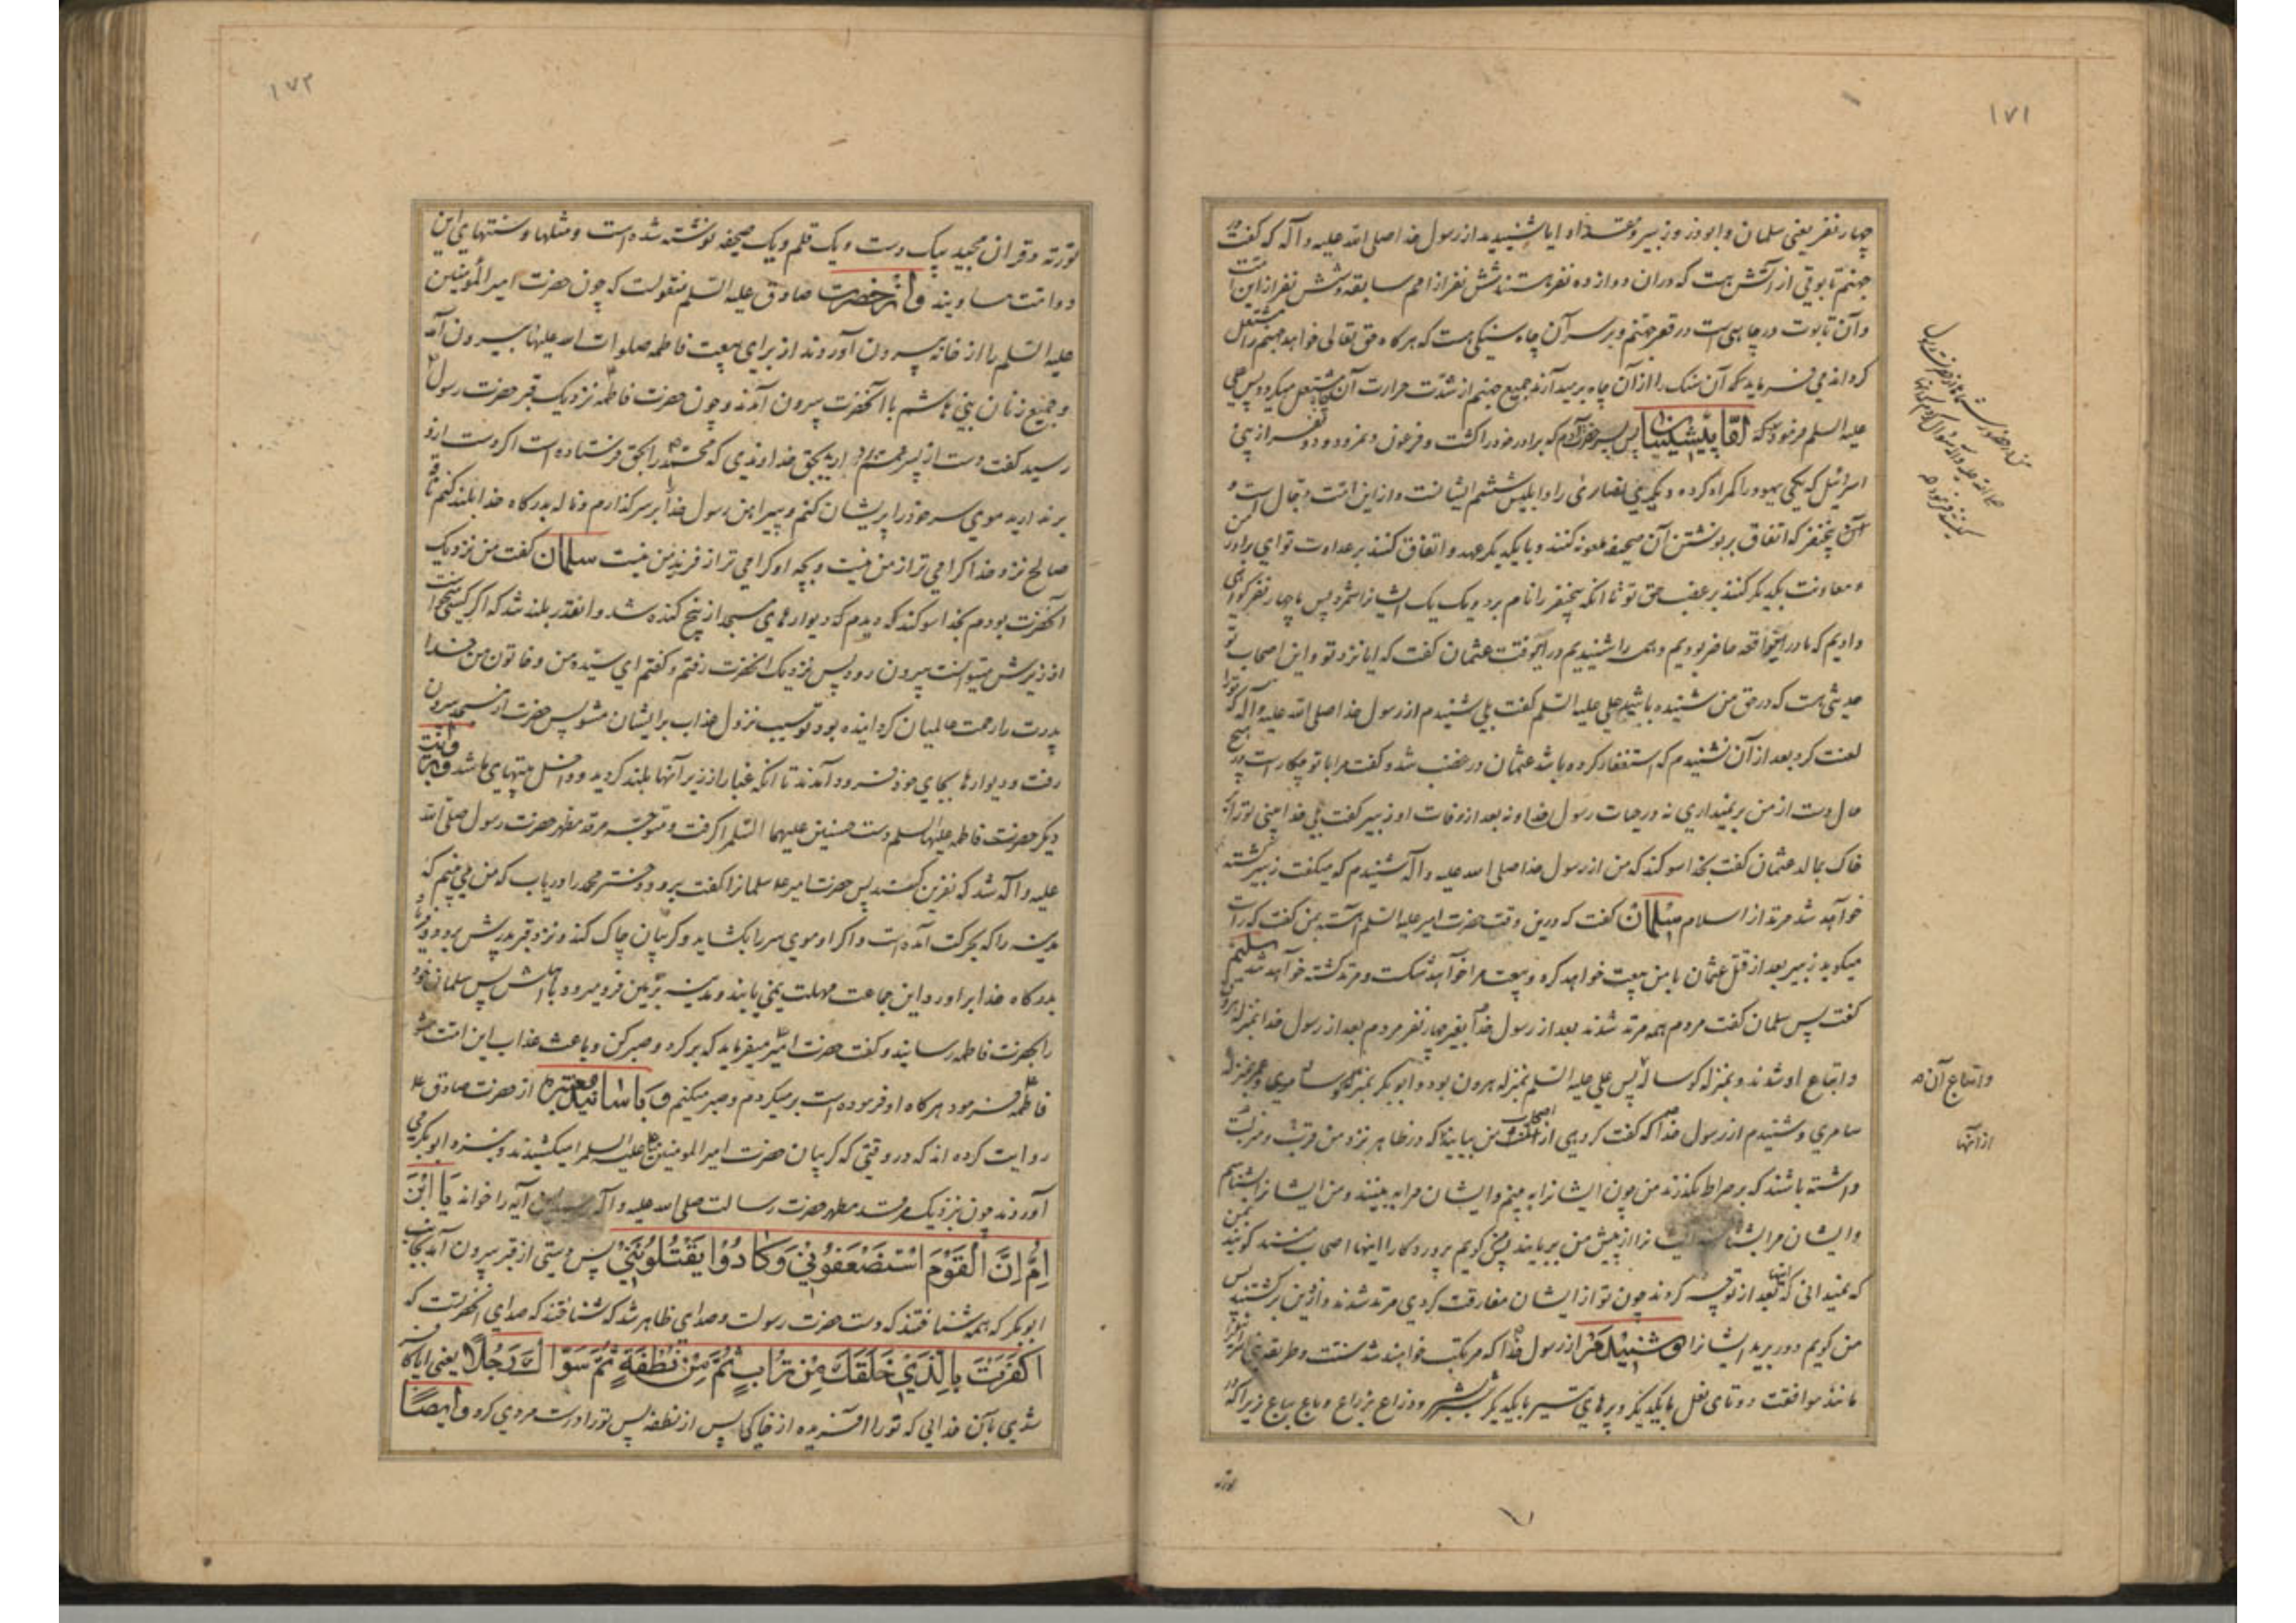 ١٧١
چهار نفر یعنی سلمان و ابوذر و زبیر و مقداد ایا شنیدید از رسول خدا صلی الله علیه و آله که گفت در
جهنم تابوتی از آتش هست که در ان دوازده نفر هستند شش نفر از امم سابقه و شش نفر از این امت
و آن تابوت در چاهی است در قعر جهنم و بر سر آن چاه سنکی هست که هرکاه حق تعالی خواهد جهنم را مشتعل
کرداند می فرماید که آن سنک را از آن چاه برمیدارند جمیع جهنم از شدت حرارت آن چاه مشتعل میکردد پس علی
علیه السلم فرمود که اما پیشینیان پس پسر آدم که برادر خود را کشت و فرعون و نمرود و دو نفر از بنی
اسرائیل که یکی یهود را کمراه کرده و یکی نصاری را و ابلیس ششم ایشانست و از این امت دجال است و
آن پنج نفر که اتفاق بر نوشتن آن صحیفه ملعونه کنند و با یکدیکر عهد و اتفاق کنند بر عداوت تو ای برادر من
و معاونت یکدیکر کنند بر غصب حق تو تا انکه پنج نفر را نام برد و یک یک ایشانرا شمرد پس ما چهار نفر کواهی
دادیم که ما در این واقعه حاضر بودیم و همه را شنیدیم در آنوقت عثمان کفت که ایا نزد تو و این اصحاب تو
حدیثی هست که در حق من شنیده باشید علی علیه السلم کفت بلی شنیدم از رسول خدا صلی الله علیه و آله که تو را
لعنت کرد بعد از آن نشنیدم که استغفار کرده باشد عثمان در غضب شد و کفت مرا با تو چکار است در هیچ
حال دست از من برنمیداری نه در حیات رسول خدا و نه بعد از وفات او زبیر کفت بلی خدا بینی تو را بر
خاک بمالد عثمان کفت بخدا سوکند که من از رسول خدا صلی الله علیه و آله شنیدم که میکفت زبیر کشته
خواهد شد مرتد از اسلام سلمان کفت که درین وقت حضرت امیر علیه السلم آهسته بمن کفت که راست
میکوید زبیر بعد از قتل عثمان با من بیعت خواهد کرد و بیعت مرا خواهد شکست و مرتد کشته خواهد شد سلیم
کفت پس سلمان کفت مردم همه مرتد شدند بعد از رسول خدا بغیر چهار نفر مردم بعد از رسول خدا بمنزله هرون
و اتباع او شدند و بمنزله کوساله پس علی علیه السلم بمنزله هرون بود و ابو بکر بمنزله کوساله سامری و عمر بمنزله
سامری و شنیدم از رسول خدا که کفت کروهی از اصحاب من بیایند که در ظاهر نزد من قرب و منزلت
داشته باشند که بر صراط بکذرند من چون ایشانرا به بینم و ایشان مرا به بینند و من ایشانرا بشناسم
و ایشان مرا بشناسند ایشانرا از پیش من بربایند پس کویم پرورد کارا اینها اصحاب منند کویند بمن
که نمیدانی که اینها بعد از تو چه کردند چون تو از ایشان مفارقت کردی مرتد شدند و از دین برکشتند پس
من کویم دور برید ایشانرا و شنیدم از رسول خدا که مرتکب خواهند شد سنت و طریقه بنی اسرائیل را
مانند موافقت دو تای نعل با یکدیکر و پرهای تیر با یکدیکر شبر بشبر و ذراع بذراع و باع بباع زیرا که در
و اتباع آن ص
از آنها
توریة
١٧٢
توریة و قران مجید بیک دست و یک قلم و یک صحیفه نوشته شده است و مثلها و سنتهای این
دو امت مساویند و از حضرت صادق علیه السلم منقولست که چون حضرت امیر المؤمنین
علیه السلم را از خانه بیرون آوردند از برای بیعت فاطمه صلوات الله علیها بیرون آمد
و جمیع زنان بنی هاشم با آنحضرت بیرون آمدند و چون حضرت فاطمه نزدیک قبر حضرت رسول
رسید کفت دست از پسر عمم بدارید بحق خداوندی که محمد را بحق فرستاده است اکر دست از او
برندارید موی سر خود را پریشان کنم و پیراهن رسول خدا بر سر کذارم و ناله بدرکاه خدا بلند کنم ناقه
صالح نزد خدا کرامی تر از من نیست و بچه او کرامی تر از فرزند من نیست سلمان کفت من نزدیک
آنحضرت بودم بخدا سوکند که دیدم که دیوارهای مسجد از بیخ کنده شد و انقدر بلند شد که اکر کسی میخواست
از زیرش میتوانست بیرون رود پس نزدیک انحضرت رفتم و کفتم ای سیده من و خاتون من خدا
پدرت را رحمت عالمیان کردانیده بود تو سبب نزول عذاب بر ایشان مشو پس حضرت از مسجد بیرون
رفت و دیوارها بجای خود فرود آمدند تا انکه غبار از زیر آنها بلند کردید و داخل بینیهای ما شد و بروایت
دیکر حضرت فاطمه علیها السلم دست حسنین علیهما السلم را کرفت و متوجه مرقد مطهر حضرت رسول صلی الله
علیه و آله شد که نفرین کند پس حضرت امیر ع سلمانرا کفت برو و دختر محمد را دریاب که من می بینم که
مدینه را که بحرکت آمده است و اکر او موی سر را بکشاید و کریبان چاک کند و نزد قبر پدرش برود و فریاد
بدرکاه خدا برآورد این جماعت مهلت نمی یابند و مدینه بزمین فرو میرود با اهلش پس سلمان خود
را بحضرت فاطمه رسانید و کفت حضرت امیر میفرماید که برکرد و صبر کن و باعث عذاب این امت مشو
فاطمه فرمود هرکاه او فرموده است بر میکردم و صبر میکنم و باسانید معتبره از حضرت صادق ع
روایت کرده اند که در وقتی که کریبان حضرت امیر المومنین علیه السلم را میکشیدند و بنزد ابو بکر می
آوردند چون نزدیک مرقد مطهر حضرت رسالت صلی الله علیه و آله رسید این آیه را خواند یَا ابْنَ
اُمَّ اِنَّ الْقَوْمَ اسْتَضْعَفُونِي وَكَادُوا يَقْتُلُونَنِي پس دستی از قبر بیرون آمد بجانب
ابو بکر که همه شناختند که دست حضرت رسولست و صدای ظاهر شد که شناختند که صدای آنحضرتست که
اَكَفَرْتَ بِالَّذِي خَلَقَكَ مِنْ تُرَابٍ ثُمَّ مِنْ نُطْفَةٍ ثُمَّ سَوَّاكَ رَجُلًا یعنی ایا کافر
شدی بآن خدایی که تو را افریده از خاکی پس از نطفه پس تو را درست مردی کرد و ایضًا